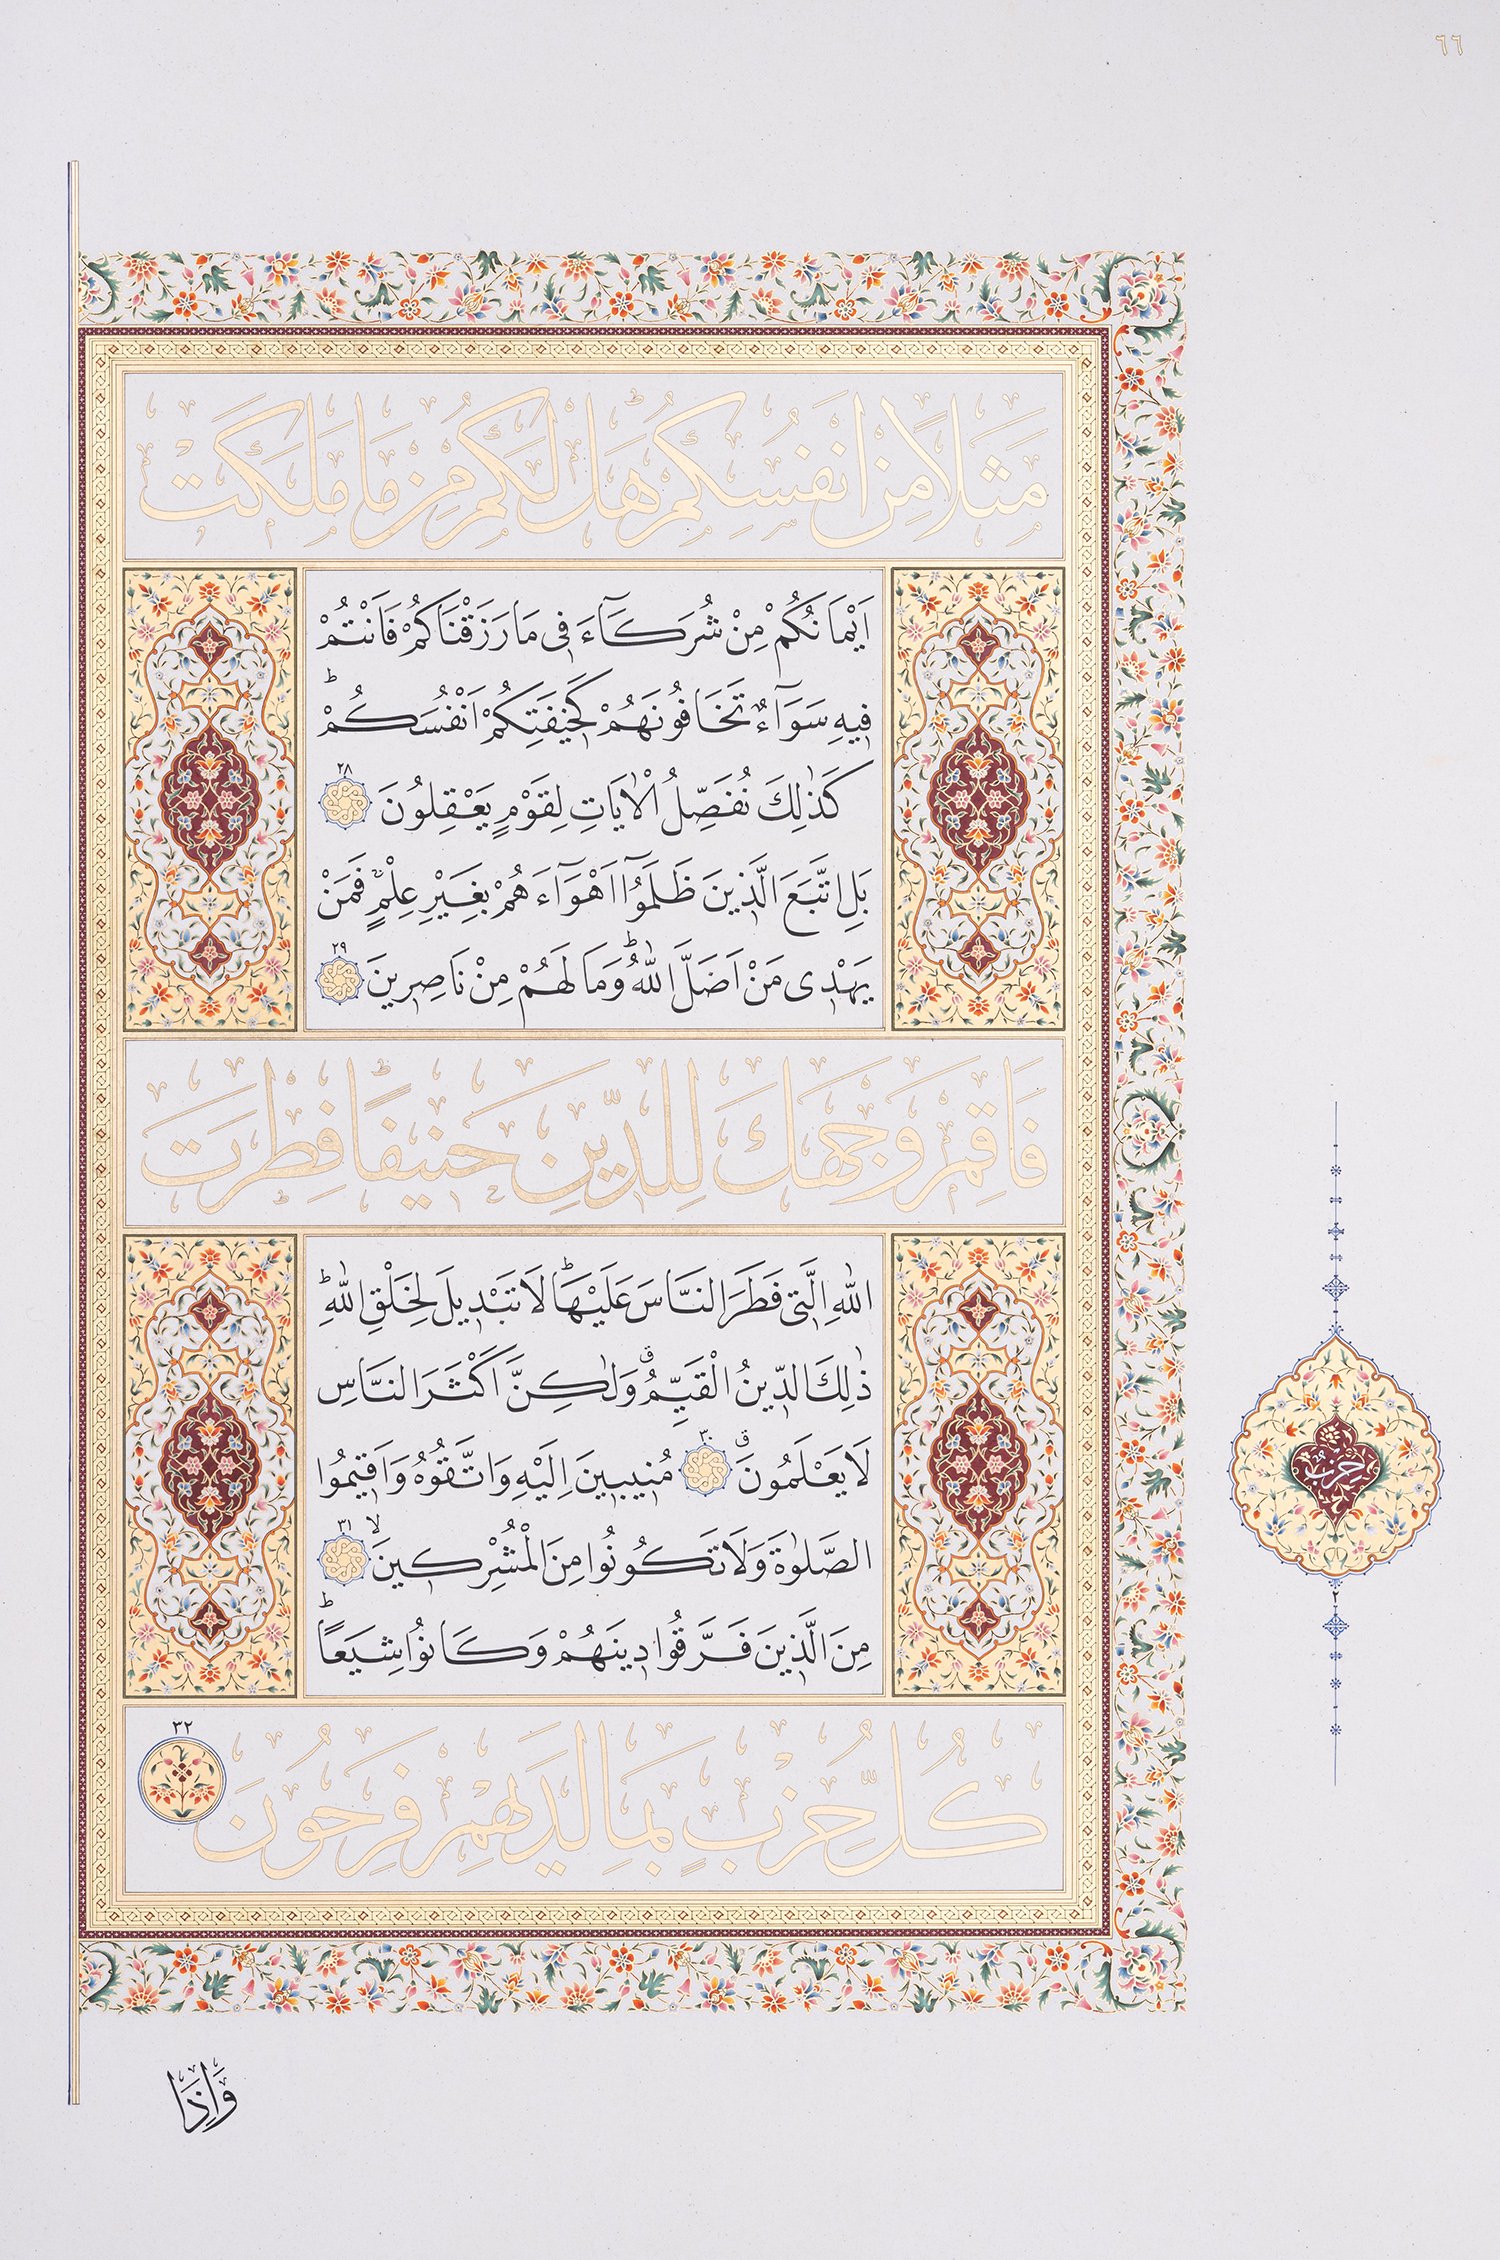 ٦٦
مَثَلًا مِنْ اَنْفُسِكُمْ هَلْ لَكُمْ مِنْ مَا مَلَكَتْ
اَيْمَانُكُمْ مِنْ شُرَكَٓاءَ فٖى مَا رَزَقْنَاكُمْ فَاَنْتُمْ
فٖيهِ سَوَٓاءٌ تَخَافُونَهُمْ كَخٖيفَتِكُمْ اَنْفُسَكُمْؕ
كَذٰلِكَ نُفَصِّلُ الْاٰيَاتِ لِقَوْمٍ يَعْقِلُونَ ٢٨
بَلِ اتَّبَعَ الَّذٖينَ ظَلَمُٓوا اَهْوَٓاءَهُمْ بِغَيْرِ عِلْمٍۚ فَمَنْ
يَهْدٖى مَنْ اَضَلَّ اللّٰهُؕ وَمَا لَهُمْ مِنْ نَاصِرٖينَ ٢٩
فَاَقِمْ وَجْهَكَ لِلدّٖينِ حَنٖيفًاؕ فِطْرَتَ
اللّٰهِ الَّتٖى فَطَرَ النَّاسَ عَلَيْهَاؕ لَا تَبْدٖيلَ لِخَلْقِ اللّٰهِؕ
ذٰلِكَ الدّٖينُ الْقَيِّمُۗ وَلٰكِنَّ اَكْثَرَ النَّاسِ
لَا يَعْلَمُونَۗ ٣٠ مُنٖيبٖينَ اِلَيْهِ وَاتَّقُوهُ وَاَقٖيمُوا
الصَّلٰوةَ وَلَا تَكُونُوا مِنَ الْمُشْرِكٖينَۙ ٣١
مِنَ الَّذٖينَ فَرَّقُوا دٖينَهُمْ وَكَانُوا شِيَعًاؕ
كُلُّ حِزْبٍ بِمَا لَدَيْهِمْ فَرِحُونَ ٣٢
حزب
٢
وَاِذَا